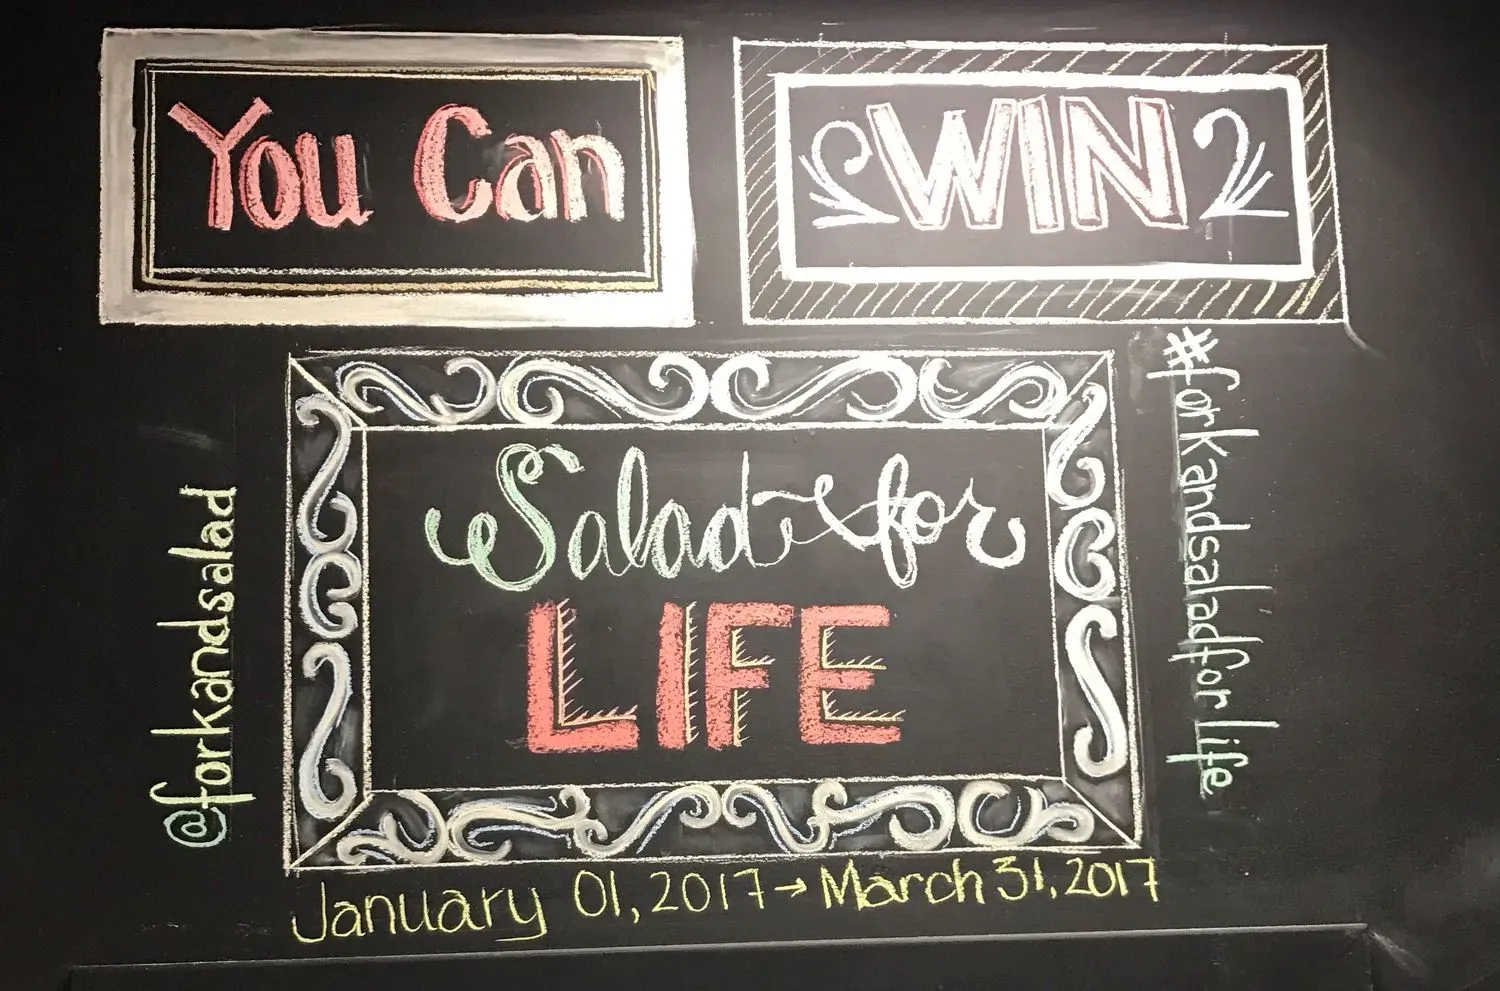 You Can
WIN
Salad for
LIFE
@forkandsalad
#forkandsaladforlife
January 01, 2017→March 31, 2017